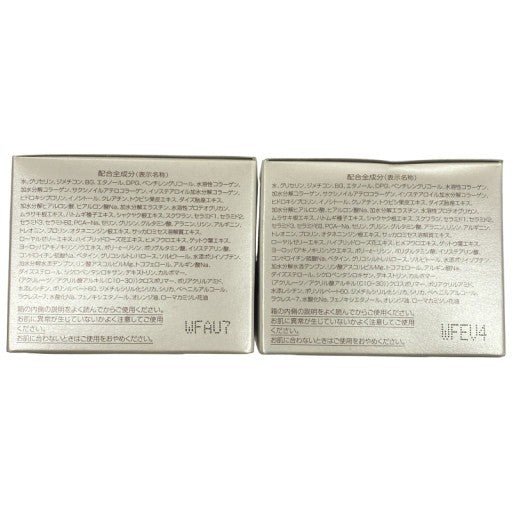 配合全成分(表示名称)
水、グリセリン、ジメチコン、BG、エタノール、DPG、ペンチレングリコール、水溶性コラーゲン、
加水分解コラーゲン、サクシノイルアテロコラーゲン、イソステアロイル加水分解コラーゲン、
ヒドロキシプロリン、イノシトール、クレアチン、トウビシ果皮エキス、ダイズ胎座エキス、
加水分解ヒアルロン酸、ヒアルロン酸Na、加水分解エラスチン、水溶性プロテオグリカン、
ムラサキ根エキス、ハトムギ種子エキス、シャクヤク根エキス、スクワラン、セラミド1、セラミド2、
セラミド3、セラミド6、PCA-Na、セリン、グリシン、グルタミン酸、アラニン、リシン、アルギニン、
トレオニン、プロリン、オタネニンジン根エキス、サッカロミセス溶解質エキス、
ローヤルゼリーエキス、ハイブリッドローズ花エキス、ヒメフウロエキス、ゲットウ葉エキス、
コンドロイチン硫酸Na、ベタイン、グリコシルトレハロース、ソルビトール、
ダイズステロール、シクロペンタシロキサン、デキストリン、カルボマー、
(アクリレーツ/アクリル酸アルキル(C10-30))クロスポリマー、ポリアクリルアミド、
水添レシチン、ポリソルベート60、ジメチルシリル化シリカ、シリカ、ベヘニルアルコール、
ラウレス-7、水酸化Na、フェノキシエタノール、オレンジ油、ローマカミツレ花油
箱の内側の説明をよく読んでからご使用ください。
お肌に異常が生じていないかよく注意してご使用
ください。
お肌に合わないときはご使用をおやめください。
WFAU7
配合全成分(表示名称)
水、グリセリン、ジメチコン、BG、エタノール、DPG、ペンチレングリコール、水溶性コラーゲン、
加水分解コラーゲン、サクシノイルアテロコラーゲン、イソステアロイル加水分解コラーゲン、
ヒドロキシプロリン、イノシトール、クレアチン、トウビシ果皮エキス、ダイズ胎座エキス、
加水分解ヒアルロン酸、ヒアルロン酸Na、加水分解エラスチン、水溶性プロテオグリカン、
ムラサキ根エキス、ハトムギ種子エキス、シャクヤク根エキス、スクワラン、セラミド1、セラミド2、
セラミド3、セラミド6、PCA-Na、セリン、グリシン、グルタミン酸、アラニン、リシン、アルギニン、
トレオニン、プロリン、オタネニンジン根エキス、サッカロミセス溶解質エキス、
ローヤルゼリーエキス、ハイブリッドローズ花エキス、ヒメフウロエキス、ゲットウ葉エキス、
コンドロイチン硫酸Na、ベタイン、グリコシルトレハロース、ソルビトール、
ダイズステロール、シクロペンタシロキサン、デキストリン、カルボマー、
(アクリレーツ/アクリル酸アルキル(C10-30))クロスポリマー、ポリアクリルアミド、
水添レシチン、ポリソルベート60、ジメチルシリル化シリカ、シリカ、ベヘニルアルコール、
ラウレス-7、水酸化Na、フェノキシエタノール、オレンジ油、ローマカミツレ花油
箱の内側の説明をよく読んでからご使用ください。
お肌に異常が生じていないかよく注意してご使用
ください。
お肌に合わないときはご使用をおやめください。
WFEV4